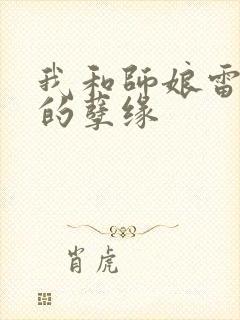 我和師娘雷
的孽缘
肖虎